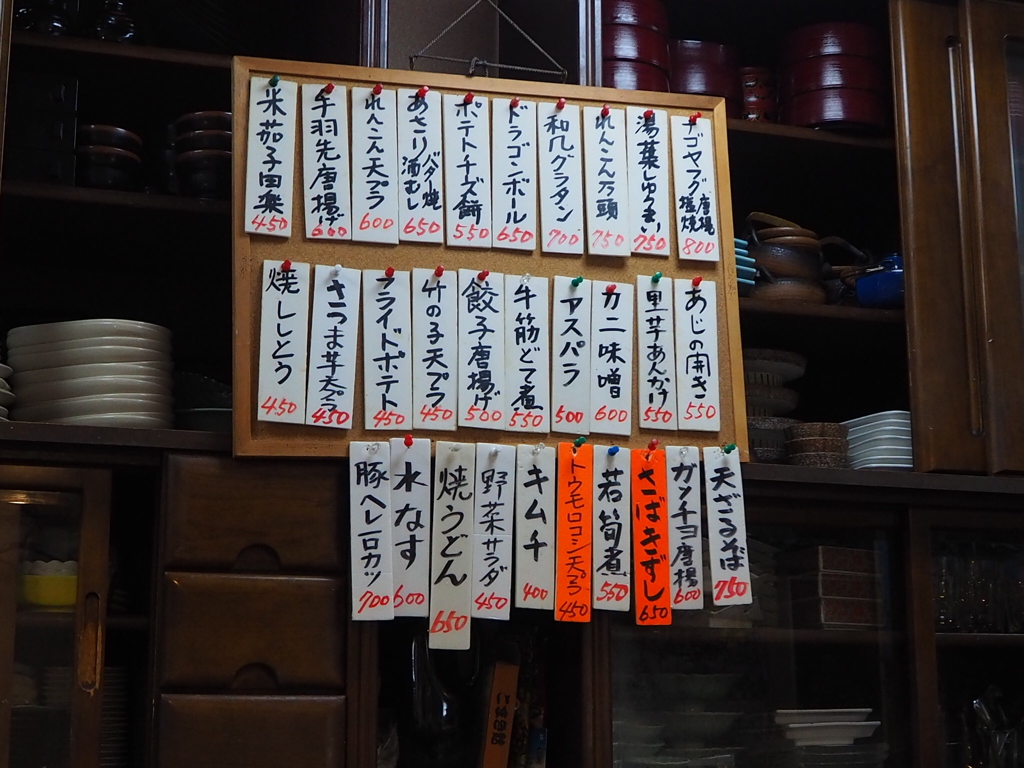 ナゴヤフグ 唐揚 塩焼 800
湯葉しゅうまい 750
れんこん万頭 750
和風グラタン 700
ドラゴンボール 650
ポテトチーズ餅 550
あさり バター焼 酒むし 650
れんこん天プラ 600
手羽先唐揚げ 600
米茄子田楽 450
あじの開き 550
里芋あんかけ 550
カニ味噌 600
アスパラ 500
牛筋どて煮 550
餃子唐揚げ 500
竹の子天プラ 450
フライドポテト 450
さつま芋天プラ 450
焼ししとう 450
天ざるそば 750
ガンチヨ唐揚 600
さばきずし 650
若筍煮 550
トウモロコシ天プラ 450
キムチ 400
野菜サラダ 450
焼うどん 650
水なす 600
豚ヘレ一口カツ 700